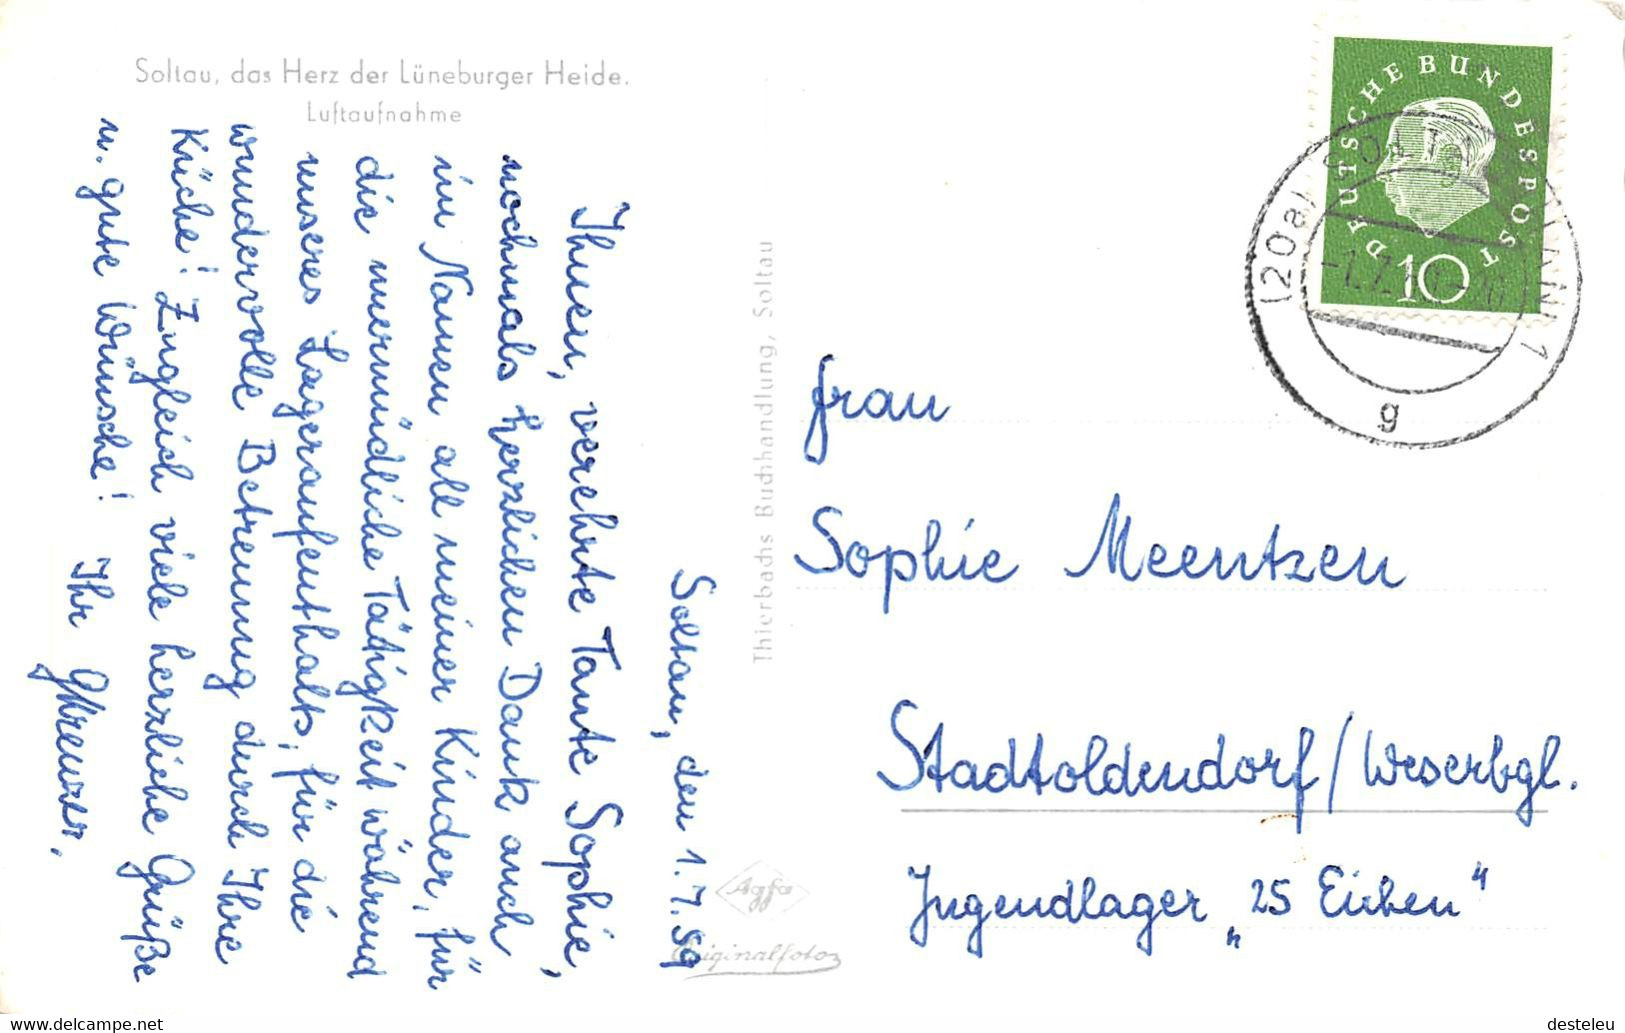 Soltau, das Herz der Lüneburger Heide.
Luftaufnahme
Soltau, den 1.7.59
Ihnen, verehrte Tante Sophie,
nochmals herzlichen Dank, auch
im Namen all meiner Kinder, für
die unermüdliche Tätigkeit während
unseres Lageraufenthalts, für die
wundervolle Betreuung durch Ihre
Küche! Zugleich viele herzliche Grüße
u. gute Wünsche! Ihr
Thierbachs Buchhandlung, Soltau
Agfa
Originalfoto
DEUTSCHE BUNDESPOST
10
(20a)
1
g
Frau
Sophie Meentzen
Stadtoldendorf/Weserbgl.
Jugendlager „25 Eichen"
https://www.delcampe.net
desteleu